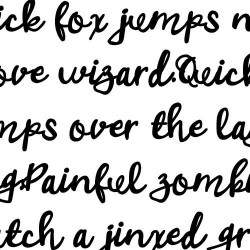 ick fox jumps n
ove wizard.Quick
mps over the la
g.Painful zomb
atch a jinxed gr